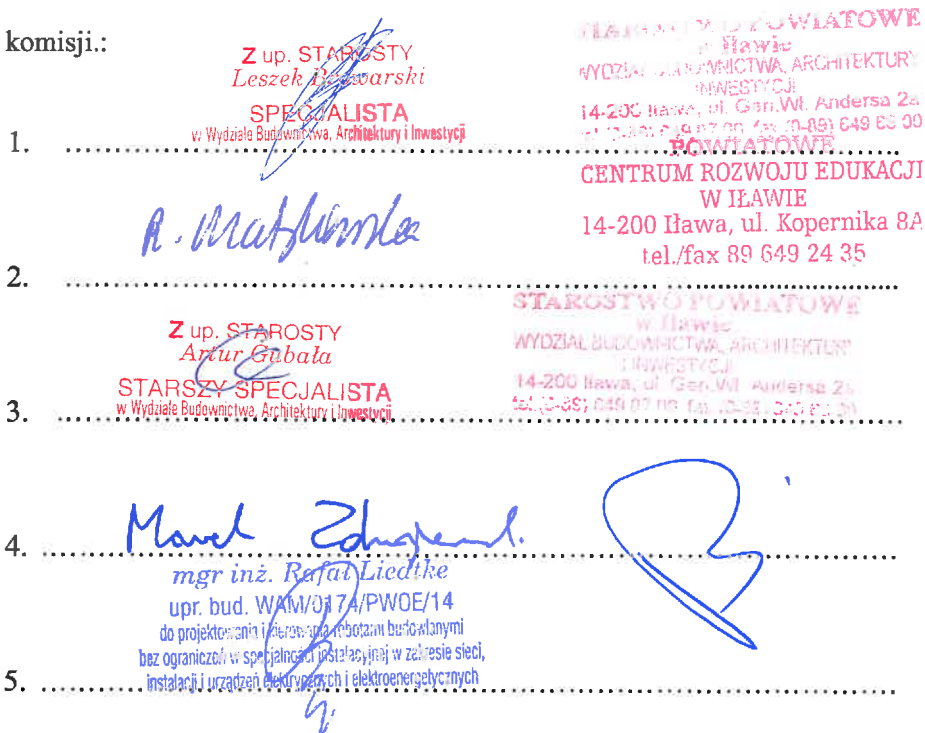 komisji.:
Z up. STAROSTY
Leszek
SPECJALISTA
w Wydziale Budownictwa, Architektury i Inwestycji
STAROSTWO POWIATOWE
w Iławie
WYDZIAŁ BUDOWNICTWA, ARCHITEKTURY
I INWESTYCJI
14-200 Iława, ul. Gen. Wł. Andersa 2a
1. ........................................
POWIATOWE
CENTRUM ROZWOJU EDUKACJI
W IŁAWIE
14-200 Iława, ul. Kopernika 8A
tel./fax 89 649 24 35
R.
2. ........................................
Z up. STAROSTY
Artur Gubała
STARSZY SPECJALISTA
w Wydziale Budownictwa, Architektury i Inwestycji
STAROSTWO POWIATOWE
w Iławie
WYDZIAŁ BUDOWNICTWA, ARCHITEKTURY
I INWESTYCJI
14-200 Iława, ul. Gen. Wł. Andersa 2a
3. ........................................
Marek
4. ........................................
mgr inż. Rafał Liedtke
upr. bud. WAM/0174/PWOE/14
do projektowania i kierowania robotami budowlanymi
bez ograniczeń w specjalności instalacyjnej w zakresie sieci,
instalacji i urządzeń elektrycznych i elektroenergetycznych
5. ........................................